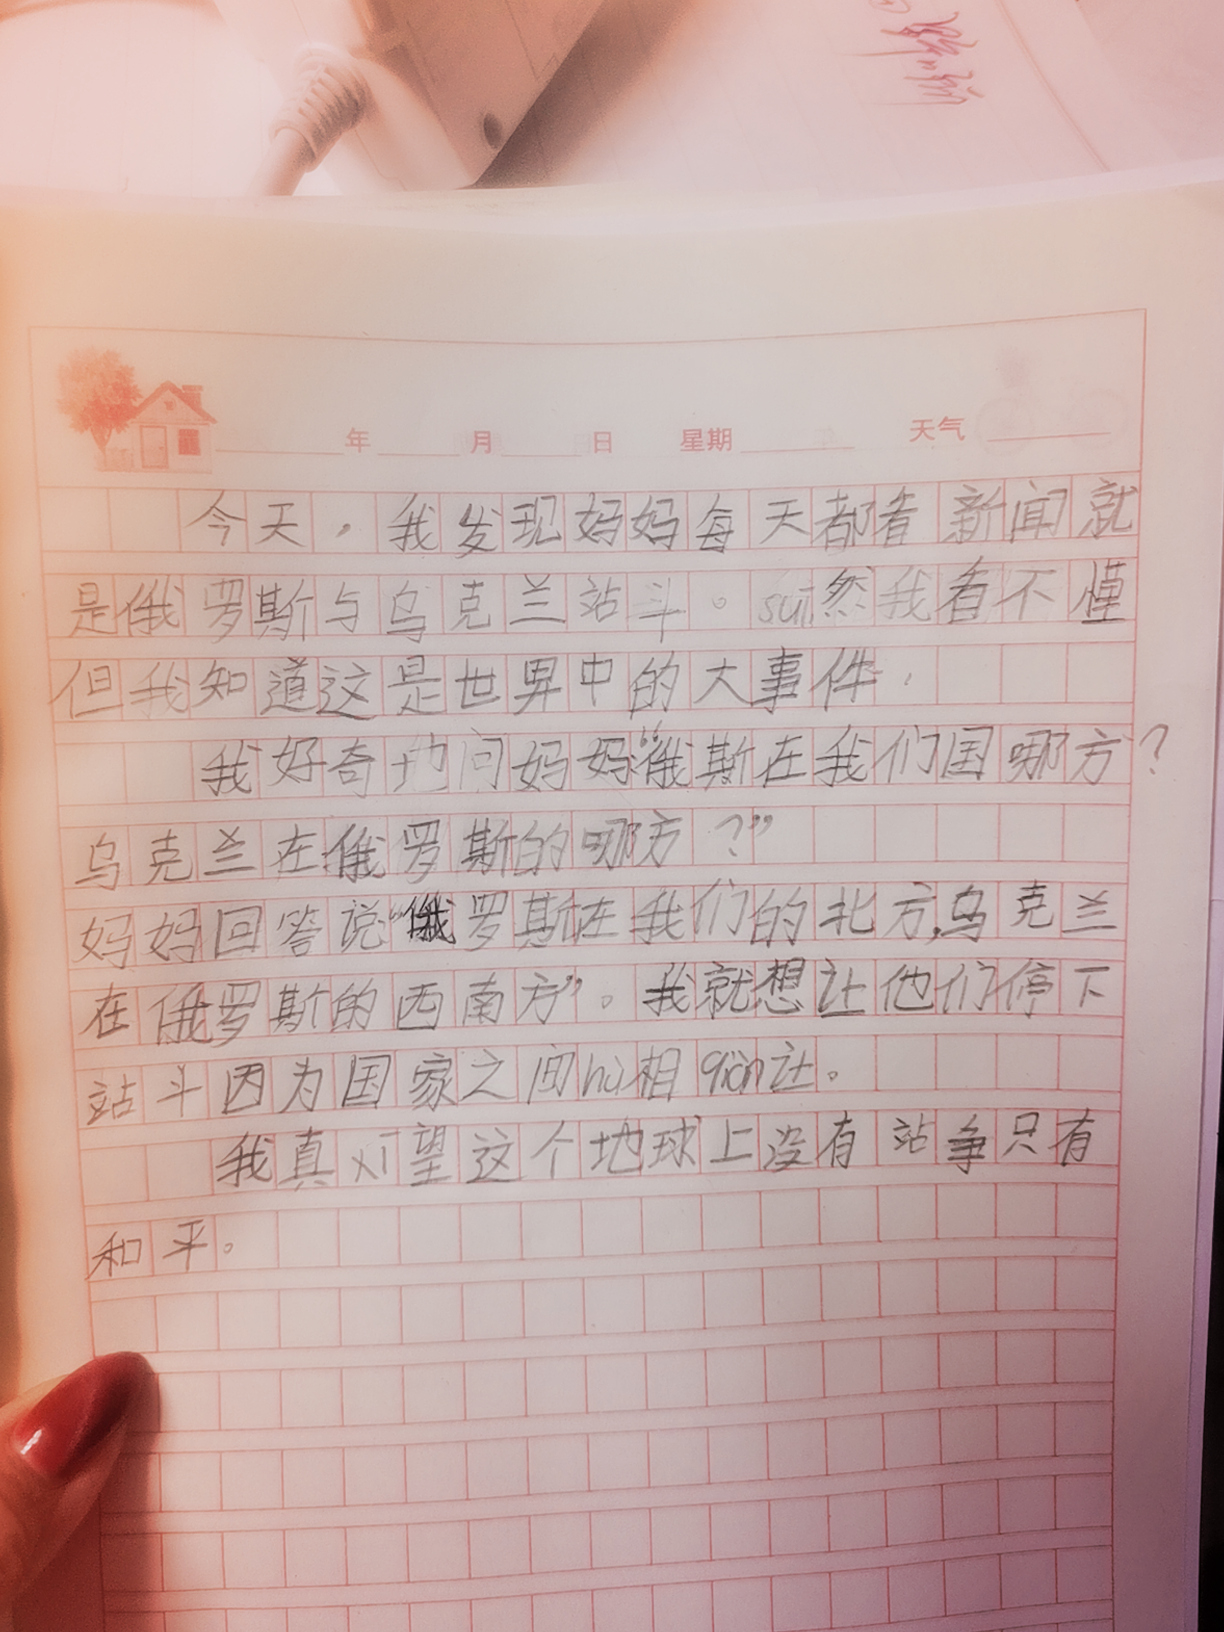 年 月 日 星期 天气
今天，我发现妈妈每天都看新闻就
是俄罗斯与乌克兰站斗。sui然我看不懂
但我知道这是世界中的大事件.
我好奇地问妈妈“俄斯在我们国哪方？
乌克兰在俄罗斯的哪方？”
妈妈回答说“俄罗斯在我们的北方,乌克兰
在俄罗斯的西南方”。我就想让他们停下
站斗因为国家之间hù相qiān让。
我真 望这个地球上没有站争只有
和平。